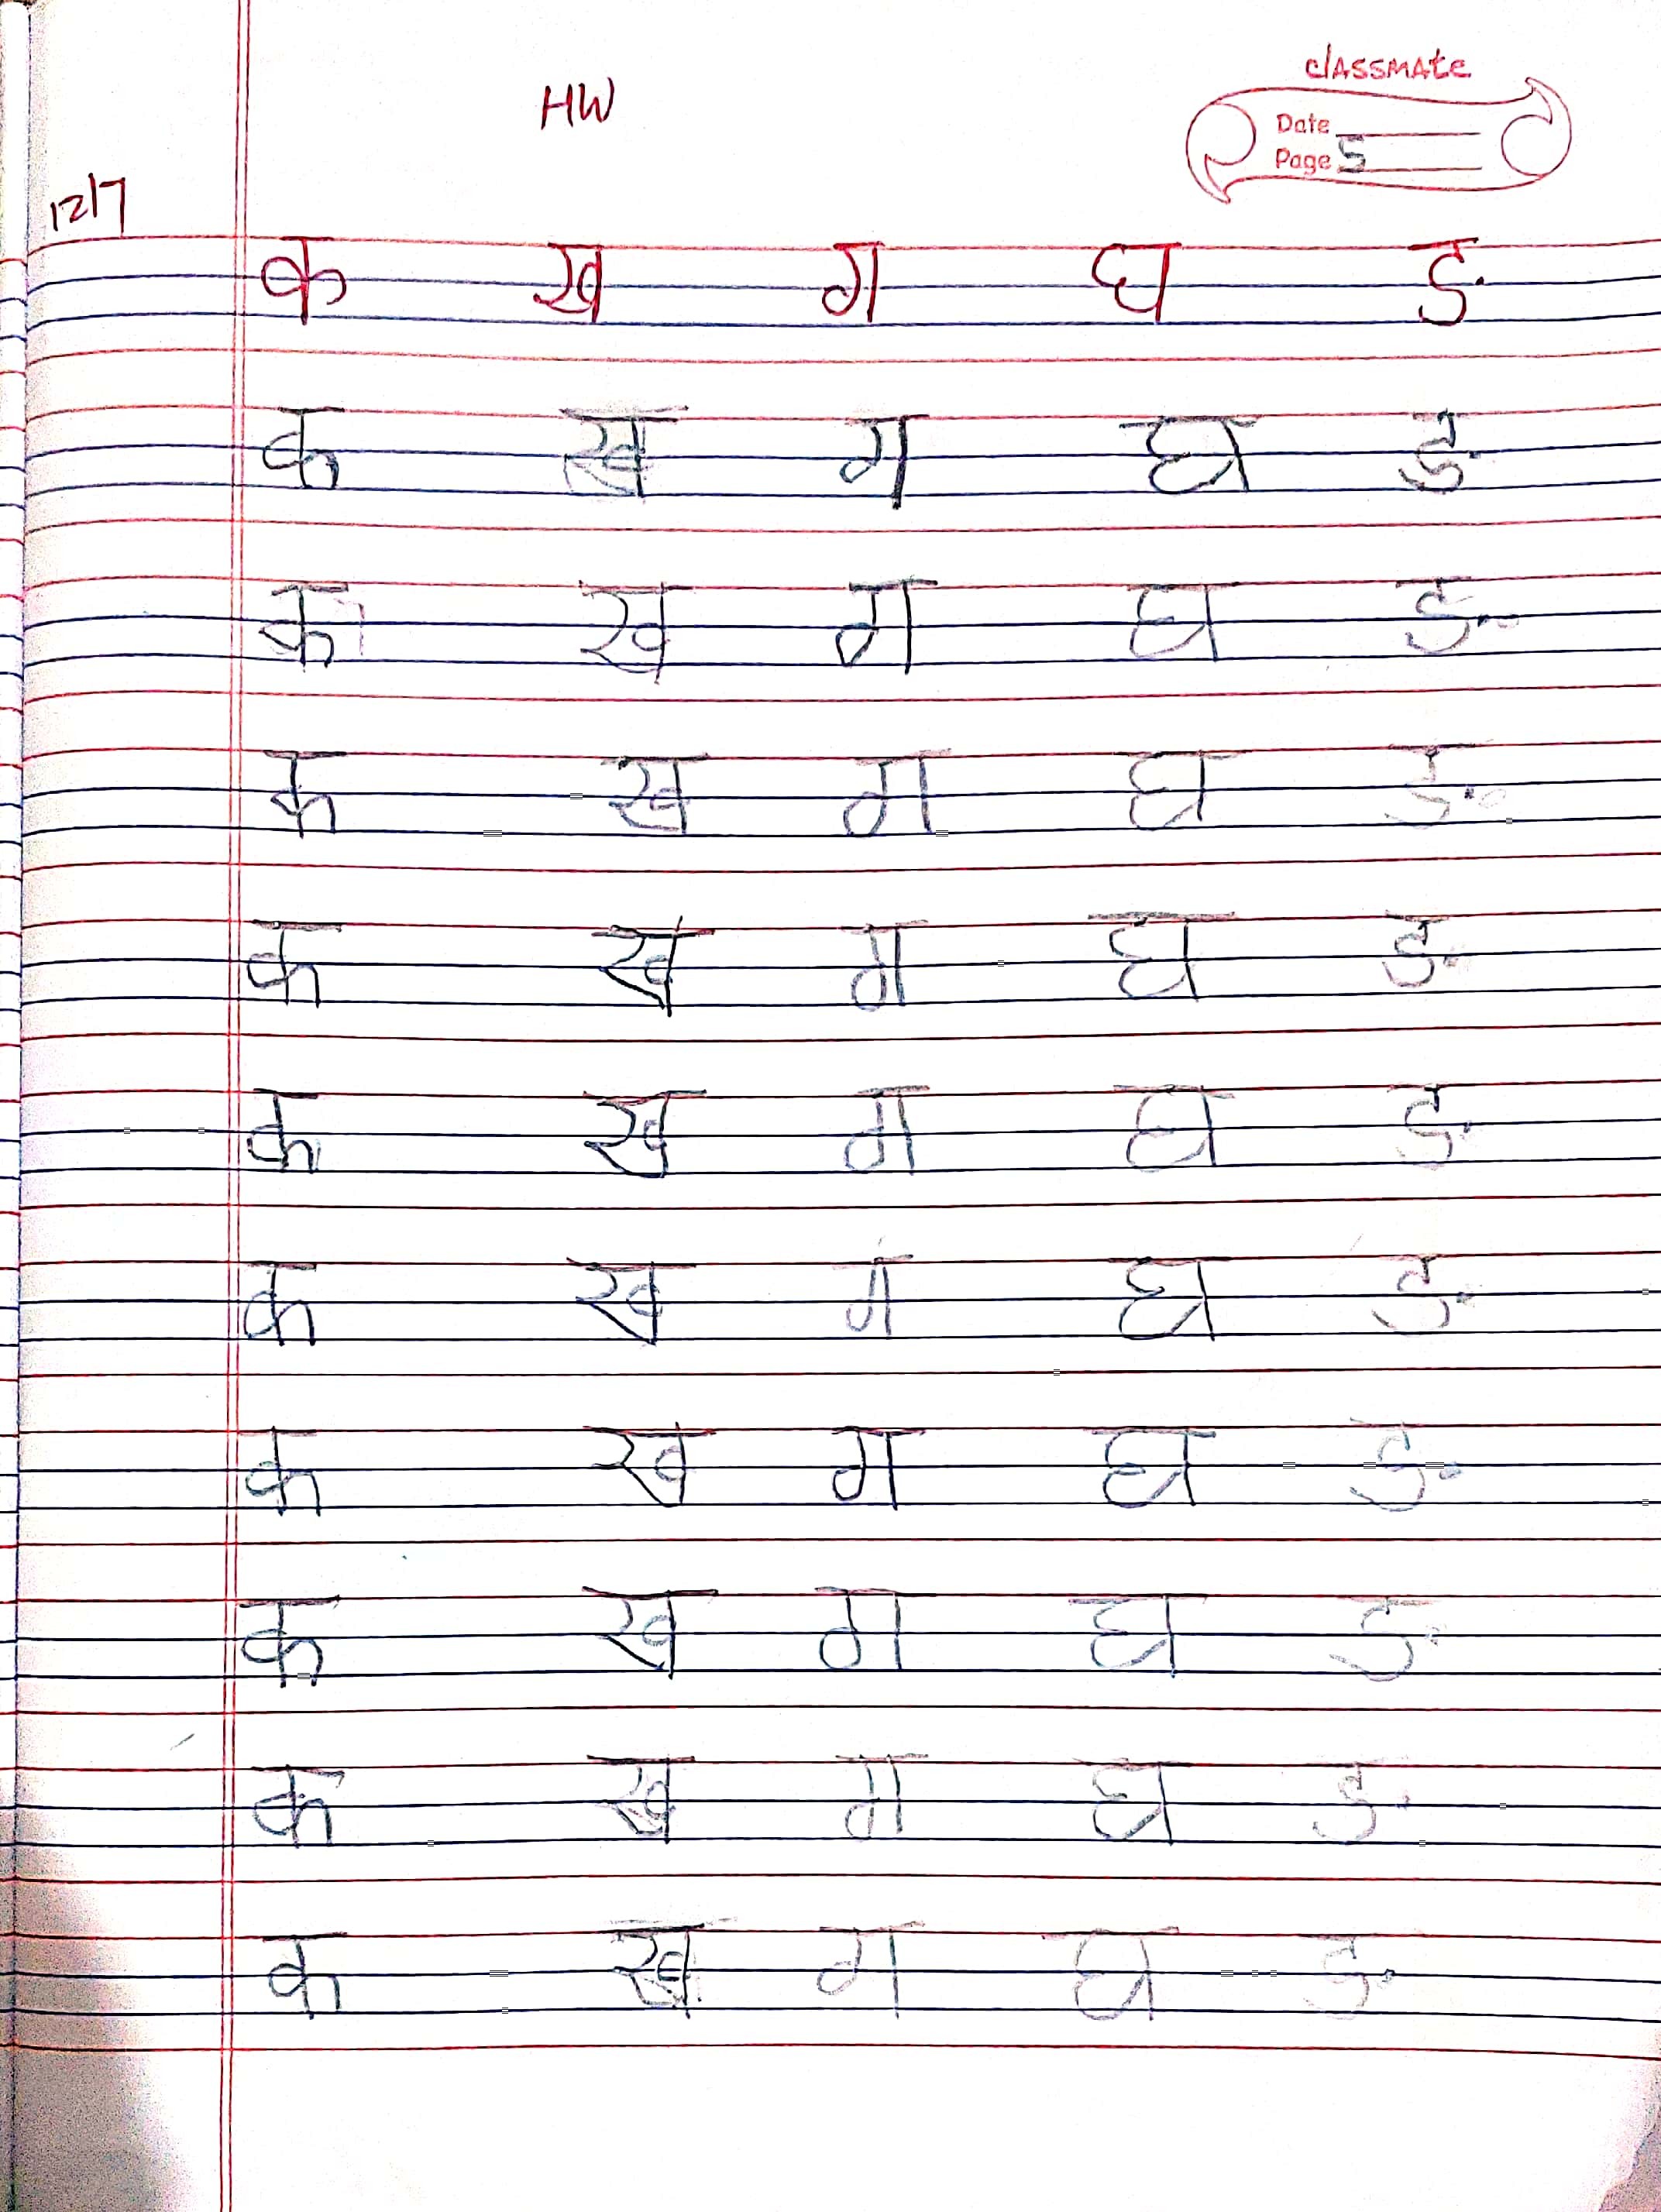 classmate
HW
Date
Page 5
12/7
क ख ग घ ङ
क ख ग घ ङ
क ख ग घ ङ
क ख ग घ ङ
क ख ग घ ङ
क ख ग घ ङ
क ख ग घ ङ
क ख ग घ ङ
क ख ग घ ङ
क ख ग घ ङ
क ख ग घ ङ